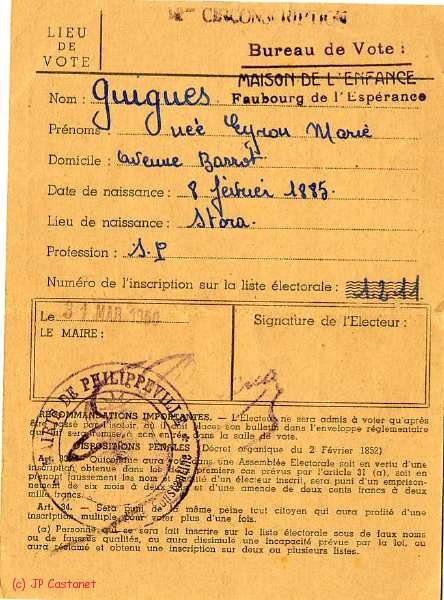 CIRCONSCRIPTION
LIEU
DE
VOTE
Bureau de Vote :
MAISON DE L'ENFANCE
Faubourg de l'Espérance
Nom : Guigues
Prénoms : née Eyrou Marie
Domicile : Avenue Barrot
Date de naissance : 8 février 1885
Lieu de naissance : Stora
Profession : S.P
Numéro de l'inscription sur la liste électorale : 1211
Le 31 MAR 1960
LE MAIRE :
Signature de l'Electeur :
MAIRIE DE PHILIPPEVILLE
RECOMMANDATIONS IMPORTANTES. — L'Electeur ne sera admis à voter qu'après
être passé par l'isoloir, où il doit placer son bulletin dans l'enveloppe réglementaire
qui lui sera remise à son entrée dans la salle de vote.
DISPOSITIONS PENALES (Décret organique du 2 Février 1852)
Art. 33. — Quiconque aura voté dans une Assemblée Electorale soit en vertu d'une
inscription obtenue dans les deux premiers cas prévus par l'article 31 (a), soit en
prenant faussement les nom et qualité d'un électeur inscrit, sera puni d'un emprison-
nement de six mois à deux ans et d'une amende de deux cents francs à deux
mille francs.
Art. 34. — Sera puni de la même peine tout citoyen qui aura profité d'une
inscription multiple pour voter plus d'une fois.
(a) Personne ne sera fait inscrire sur la liste électorale sous de faux noms
ou de fausses qualités, ou aura dissimulé une incapacité prévue par la loi, ou
aura réclamé et obtenu une inscription sur deux ou plusieurs listes.
(c) JP Castanet